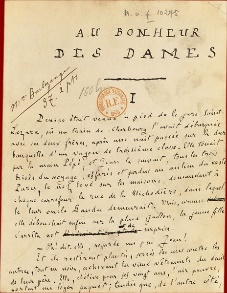 AU BONHEUR
DES DAMES
I
Denise était venue à pied de la gare Saint-
Lazare, où un train de Cherbourg l'avait débarquée
avec ses deux frères, après une nuit passée sur la dure
banquette d'un wagon de troisième classe. Elle tenait
par la main Pépé, et Jean la suivait, tous les trois
brisés du voyage, effarés et perdus au milieu du vaste
Paris, le nez levé sur les maisons, demandant à
chaque carrefour la rue de la Michodière, dans laquelle
leur oncle Baudu demeurait. Mais, comme
elle débouchait enfin sur la place Gaillon, la jeune fille
s'arrêta net
— Oh! dit-elle, regarde un peu, Jean!
Et ils restèrent plantés, serrés les uns contre les
autres, tout en noir, achevant les vieux vêtements du deuil
de leur père. Elle, chétive pour ses vingt ans, l'air pauvre,
portait un léger paquet; tandis que, de l'autre côté,